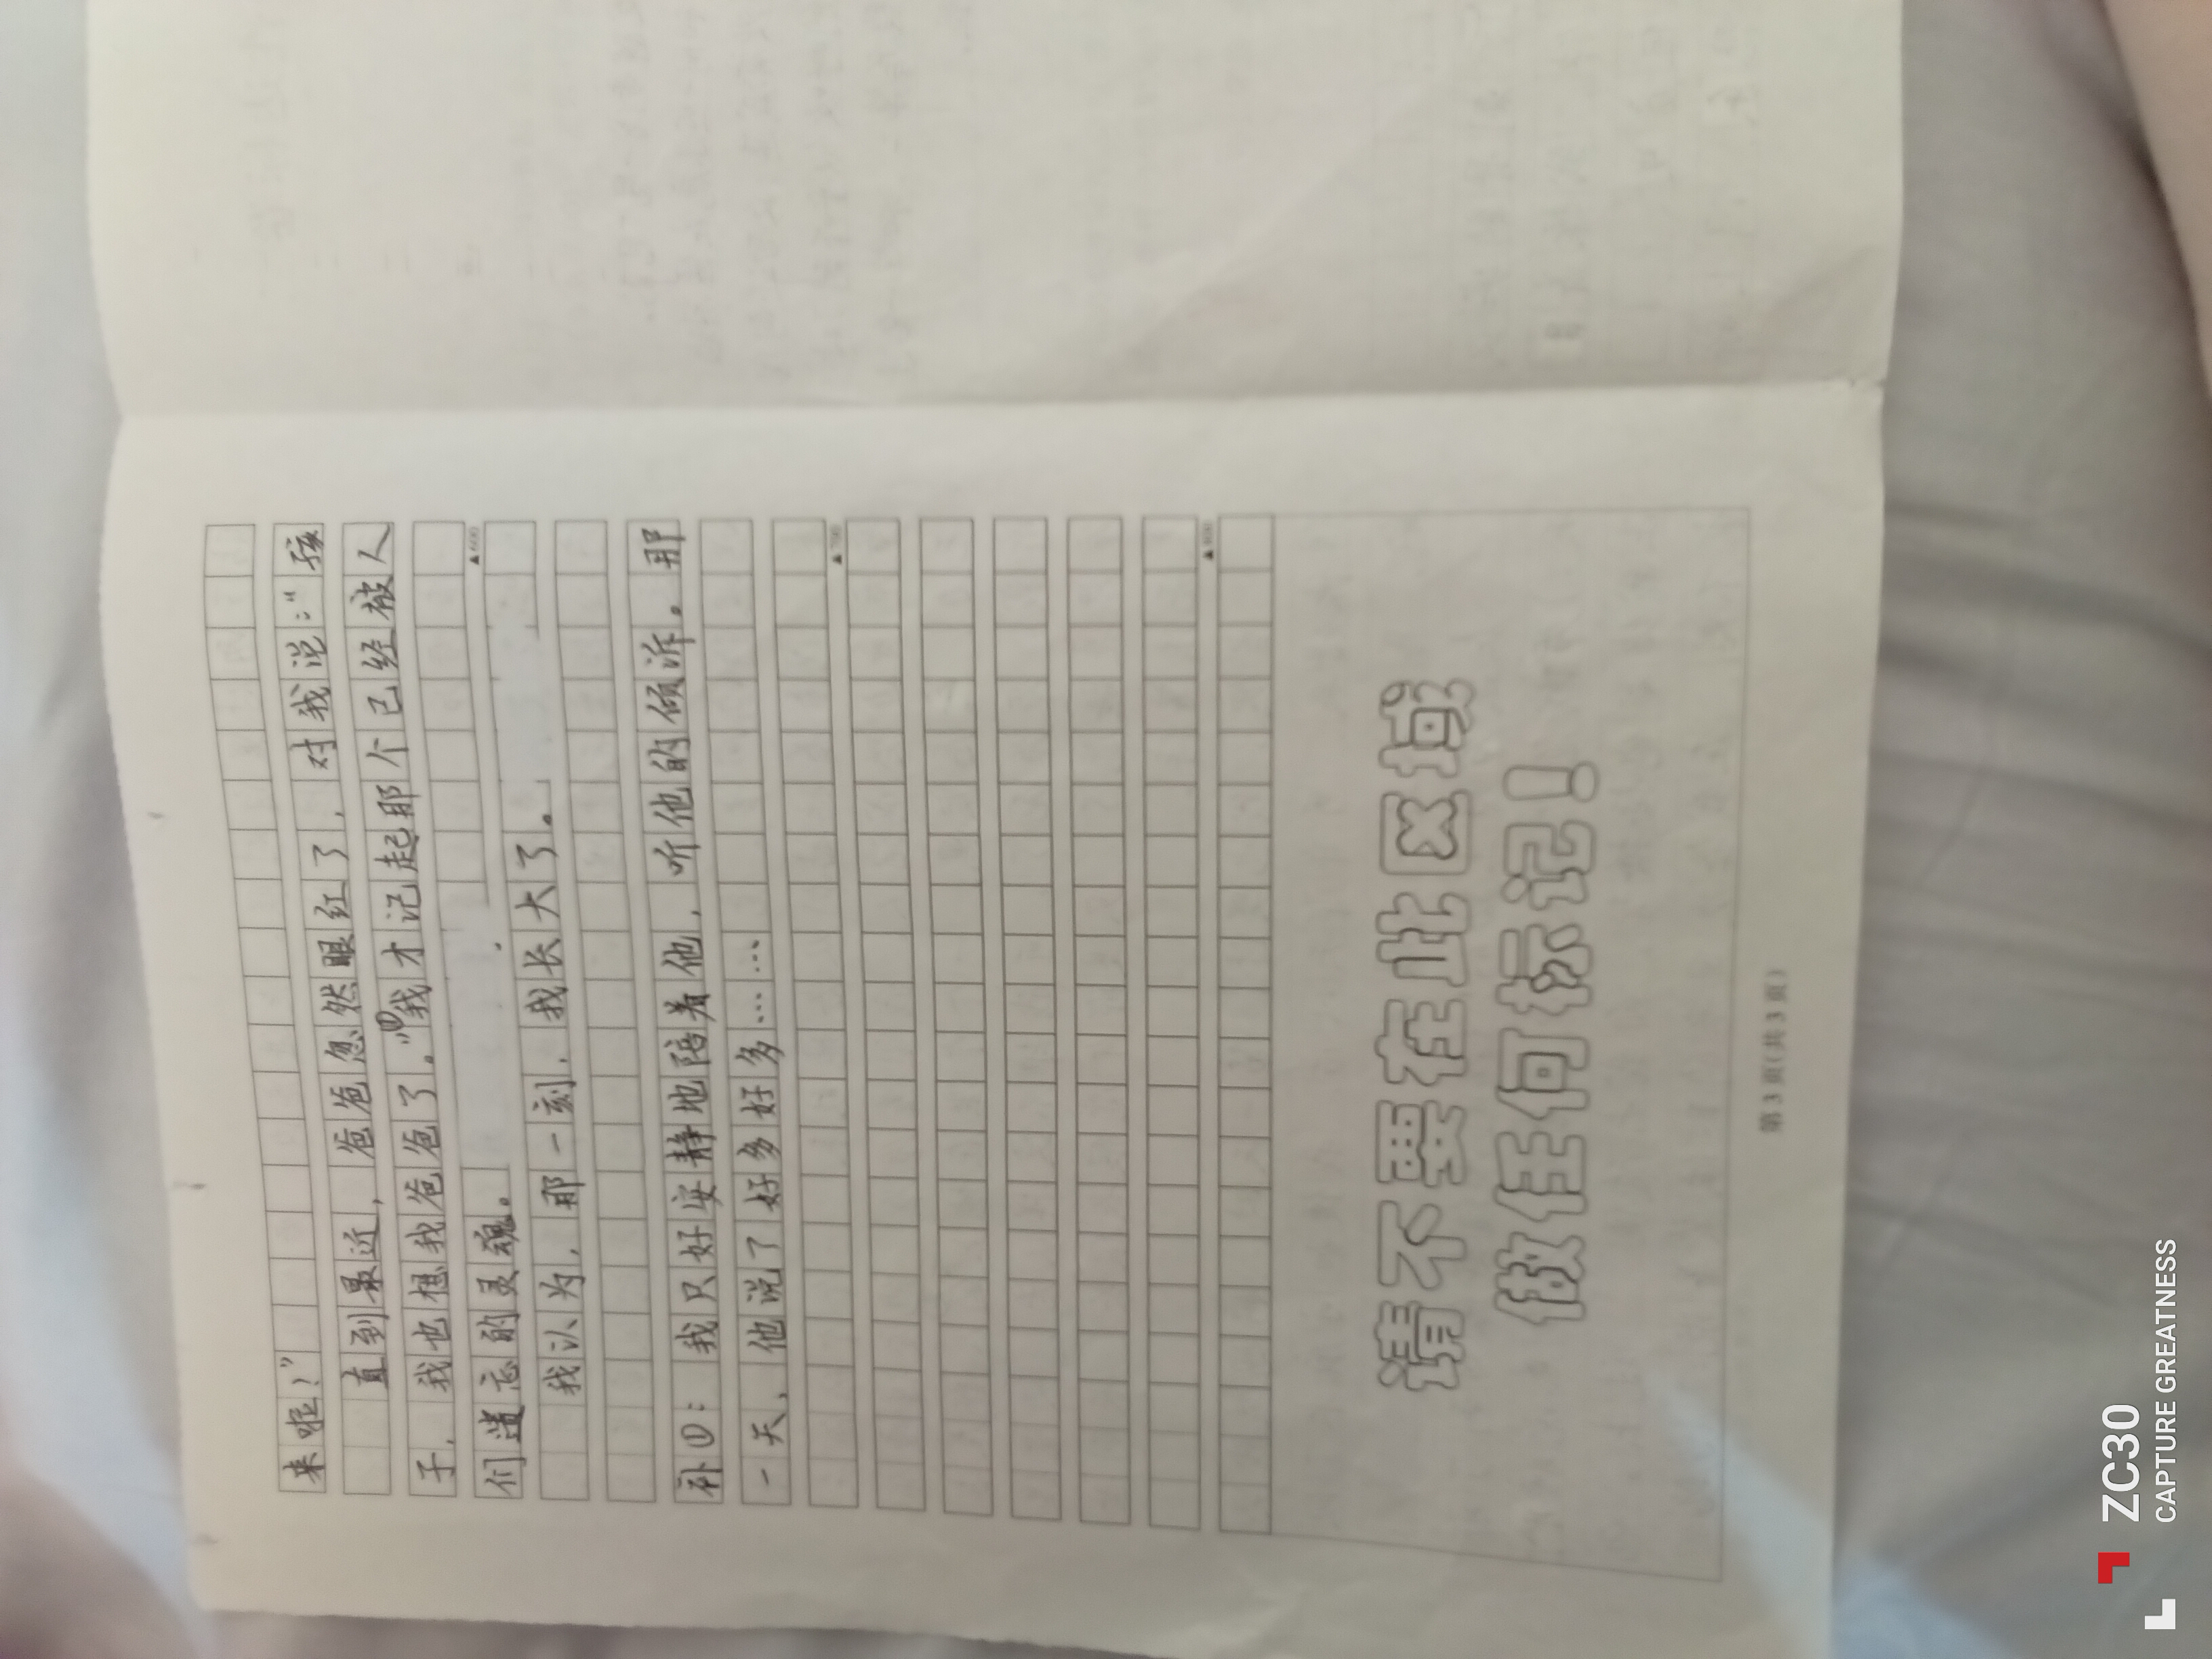 来啦？”
直到最近，爸爸忽然眼红了，对我说：“孩
子，我也想我爸爸了。”我才记起那个已经被人
们遗忘的灵魂。
▲600
我认为，那一刻，我长大了。
补①：我只好安静地陪着他，听他的倾诉。那
一天，他说了好多好多……
▲700
▲800
请不要在此区域
做任何标记！
第3页(共3页)
ZC30
CAPTURE GREATNESS